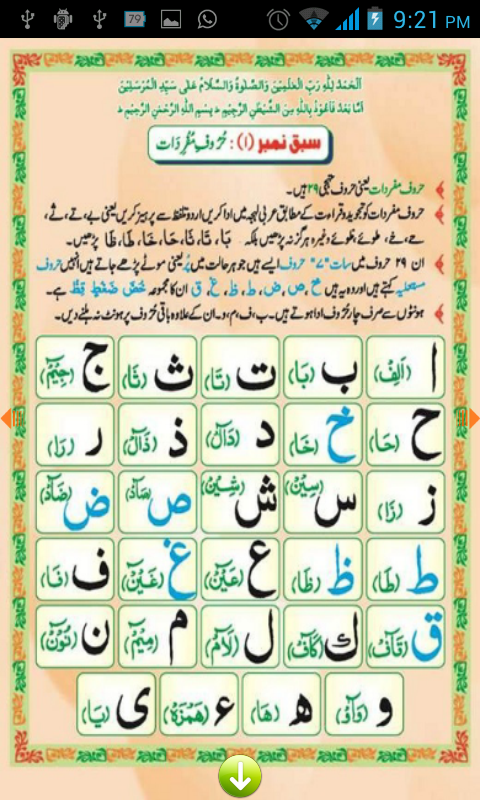 79
9:21 PM
اَلْحَمْدُ لِلّٰهِ رَبِّ الْعٰلَمِیْنَ وَالصَّلٰوةُ وَالسَّلَامُ عَلٰی سَیِّدِ الْمُرْسَلِیْنَ
اَمَّا بَعْدُ فَاَعُوْذُ بِاللّٰهِ مِنَ الشَّیْطٰنِ الرَّجِیْمِ بِسْمِ اللّٰهِ الرَّحْمٰنِ الرَّحِیْمِ
سبق نمبر (۱) : حُرُوفِ مُفْرَدَات
حروف مفردات یعنی حروف تہجی ۲۹ ہیں۔
حروف مفردات کو تجوید و قراءت کے مطابق عربی لہجہ میں ادا کریں اردو تلفظ سے پرہیز کریں یعنی بے، تے، ثے،
حے، خے، طوئے، ظوئے وغیرہ ہرگز نہ پڑھیں بلکہ بَا، تَا، ثَا، حَا، خَا، طَا، ظَا پڑھیں۔
ان ۲۹ حروف میں سات "۷" حروف ایسے ہیں جو ہر حالت میں پُر یعنی موٹے پڑھے جاتے ہیں انہیں حروف
مستعلیہ کہتے ہیں اور وہ یہ ہیں خ، ص، ض، ط، ظ، غ، ق ان کا مجموعہ خُصَّ ضَغْطٍ قِظْ ہے۔
ہونٹوں سے صرف چار حُرُوف ادا ہوتے ہیں۔ ب، ف، م، و۔ ان کے علاوہ باقی حُرُوف پر ہونٹ نہ ہلنے دیں۔
ا (اَلِفْ) ب (بَا) ت (تَا) ث (ثَا) ج (جِیْمْ)
ح (حَا) خ (خَا) د (دَالْ) ذ (ذَالْ) ر (رَا)
ز (زَا) س (سِیْنْ) ش (شِیْنْ) ص (صَادْ) ض (ضَادْ)
ط (طَا) ظ (ظَا) ع (عَیْنْ) غ (غَیْنْ) ف (فَا)
ق (قَافْ) ك (كَافْ) ل (لَامْ) م (مِیْمْ) ن (نُوْنْ)
و (وَاوْ) ھ (ھَا) ء (ھَمْزَہْ) ی (یَا)